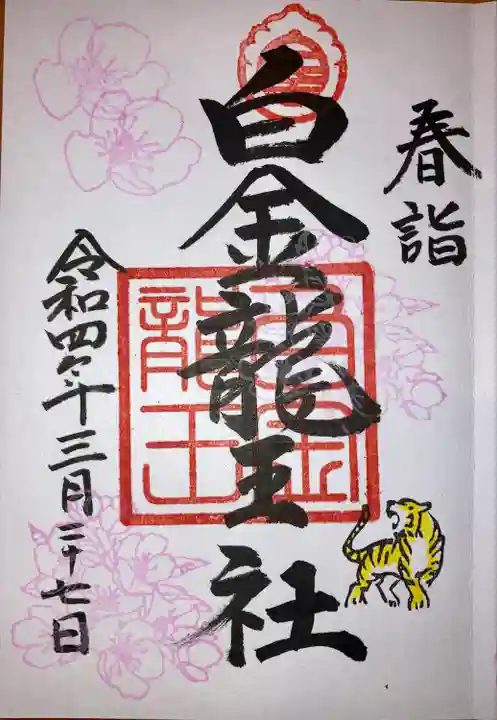 春詣
白金龍王社
令和四年三月二十七日
白金
龍王